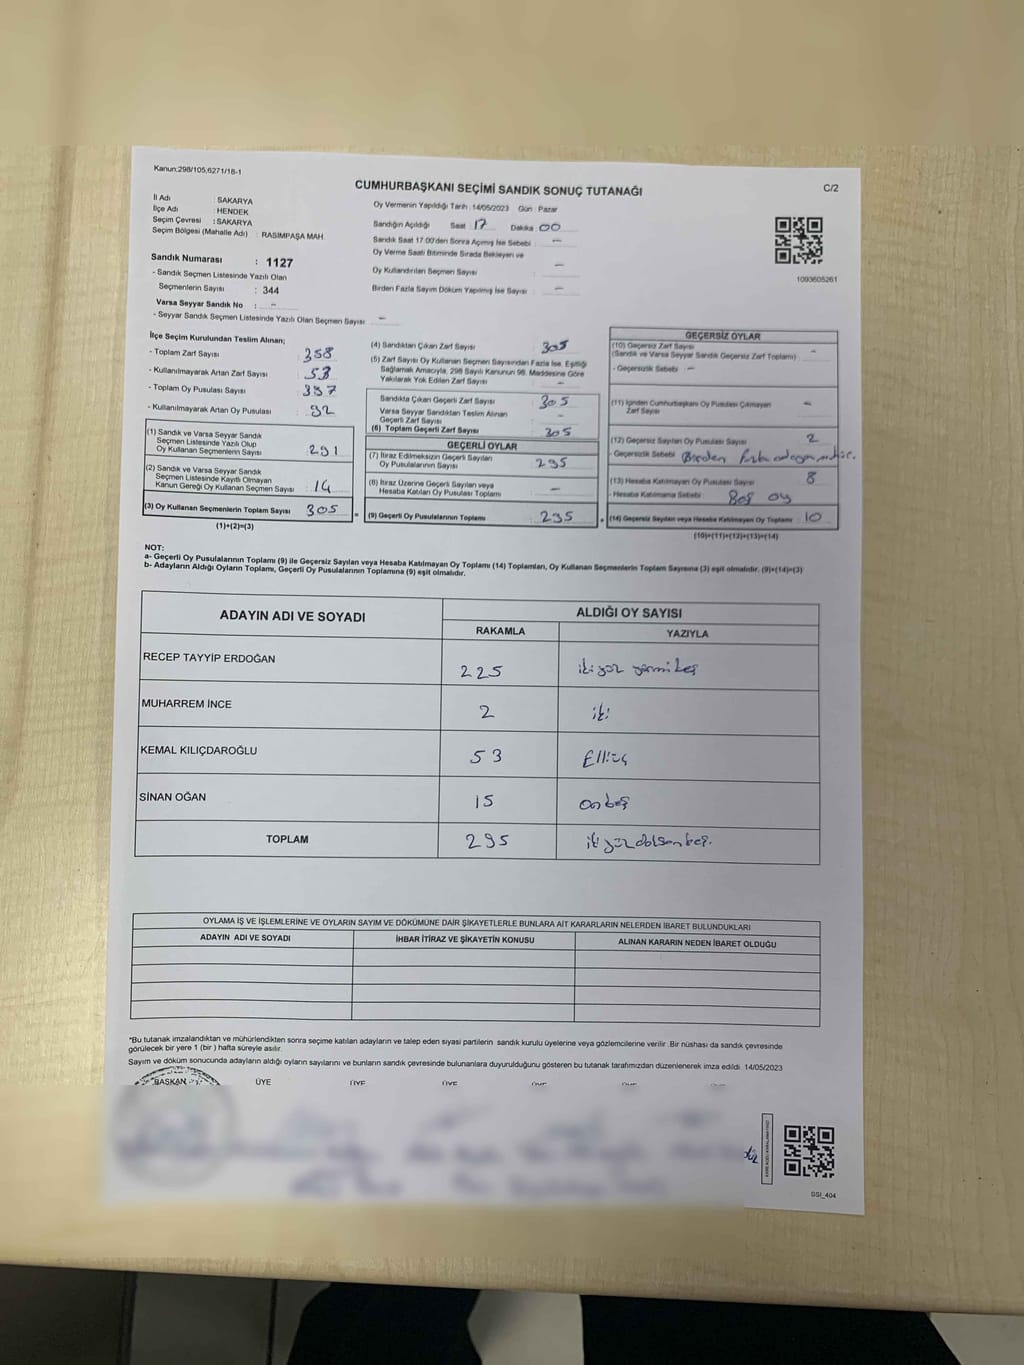 Kanun:298/105;6271/18-1
CUMHURBAŞKANI SEÇİMİ SANDIK SONUÇ TUTANAĞI
C/2
İl Adı : SAKARYA
İlçe Adı : HENDEK
Seçim Çevresi : SAKARYA
Seçim Bölgesi (Mahalle Adı) : RASIMPAŞA MAH.
Sandık Numarası : 1127
- Sandık Seçmen Listesinde Yazılı Olan
Seçmenlerin Sayısı : 344
Varsa Seyyar Sandık No : -
- Seyyar Sandık Seçmen Listesinde Yazılı Olan Seçmen Sayısı : -
Oy Vermenin Yapıldığı Tarih : 14/05/2023 Gün : Pazar
Sandığın Açıldığı Saat : 17 Dakika : 00
Sandık Saat 17:00'den Sonra Açmış İse Sebebi : -
Oy Verme Saati Bitiminde Sırada Bekleyen ve
Oy Kullandırılan Seçmen Sayısı : -
Birden Fazla Sayım Döküm Yapılmış İse Sayısı : -
1093605261
İlçe Seçim Kurulundan Teslim Alınan;
- Toplam Zarf Sayısı : 358
- Kullanılmayarak Artan Zarf Sayısı : 53
- Toplam Oy Pusulası Sayısı :
- Kullanılmayarak Artan Oy Pusulası : 92
(1) Sandık ve Varsa Seyyar Sandık
Seçmen Listesinde Yazılı Olup
Oy Kullanan Seçmenlerin Sayısı : 291
(2) Sandık ve Varsa Seyyar Sandık
Seçmen Listesinde Kayıtlı Olmayan
Kanun Gereği Oy Kullanan Seçmen Sayısı : 14
(3) Oy Kullanan Seçmenlerin Toplam Sayısı : 305
(1)+(2)=(3)
(4) Sandıktan Çıkan Zarf Sayısı : 305
(5) Zarf Sayısı Oy Kullanan Seçmen Sayısından Fazla İse, Eşitliği
Sağlamak Amacıyla, 298 Sayılı Kanunun 98. Maddesine Göre
Yakılarak Yok Edilen Zarf Sayısı : -
Sandıkta Çıkan Geçerli Zarf Sayısı : 305
Varsa Seyyar Sandıktan Teslim Alınan
Geçerli Zarf Sayısı : -
(6) Toplam Geçerli Zarf Sayısı : 305
GEÇERLİ OYLAR
(7) İtiraz Edilmeksizin Geçerli Sayılan
Oy Pusulalarının Sayısı : 295
(8) İtiraz Üzerine Geçerli Sayılan veya
Hesaba Katılan Oy Pusulası Toplamı : -
(9) Geçerli Oy Pusulalarının Toplamı : 295
GEÇERSİZ OYLAR
(10) Geçersiz Zarf Sayısı
(Sandık ve Varsa Seyyar Sandık Geçersiz Zarf Toplamı) : -
- Geçersizlik Sebebi : -
(11) İçinden Cumhurbaşkanı Oy Pusulası Çıkmayan
Zarf Sayısı : -
(12) Geçersiz Sayılan Oy Pusulası Sayısı : 2
- Geçersizlik Sebebi : Birden fazla
(13) Hesaba Katılmayan Oy Pusulası Sayısı : 8
- Hesaba Katılmama Sebebi : Boş oy
(14) Geçersiz Sayılan veya Hesaba Katılmayan Oy Toplamı : 10
(10)+(11)+(12)+(13)=(14)
NOT:
a- Geçerli Oy Pusulalarının Toplamı (9) ile Geçersiz Sayılan veya Hesaba Katılmayan Oy Toplamı (14) Toplamları, Oy Kullanan Seçmenlerin Toplam Sayısına (3) eşit olmalıdır. (9)+(14)=(3)
b- Adayların Aldığı Oyların Toplamı, Geçerli Oy Pusulalarının Toplamına (9) eşit olmalıdır.
ADAYIN ADI VE SOYADI
ALDIĞI OY SAYISI
RAKAMLA YAZIYLA
RECEP TAYYİP ERDOĞAN 225 ikiyüz yirmi beş
MUHARREM İNCE 2 iki
KEMAL KILIÇDAROĞLU 53 Elliüç
SİNAN OĞAN 15 onbeş
TOPLAM 295 ikiyüz doksan beş.
OYLAMA İŞ VE İŞLEMLERİNE VE OYLARIN SAYIM VE DÖKÜMÜNE DAİR ŞİKAYETLERLE BUNLARA AİT KARARLARIN NELERDEN İBARET BULUNDUKLARI
ADAYIN ADI VE SOYADI İHBAR İTİRAZ VE ŞİKAYETİN KONUSU ALINAN KARARIN NEDEN İBARET OLDUĞU
*Bu tutanak imzalandıktan ve mühürlendikten sonra seçime katılan adayların ve talep eden siyasi partilerin sandık kurulu üyelerine veya gözlemcilerine verilir .Bir nüshası da sandık çevresinde
görülecek bir yere 1 (bir ) hafta süreyle asılır.
Sayım ve döküm sonucunda adayların aldığı oyların sayılarını ve bunların sandık çevresinde bulunanlara duyurulduğunu gösteren bu tutanak tarafımızdan düzenlenerek imza edildi. 14/05/2023
BAŞKAN ÜYE ÜYE ÜYE
GSI_404